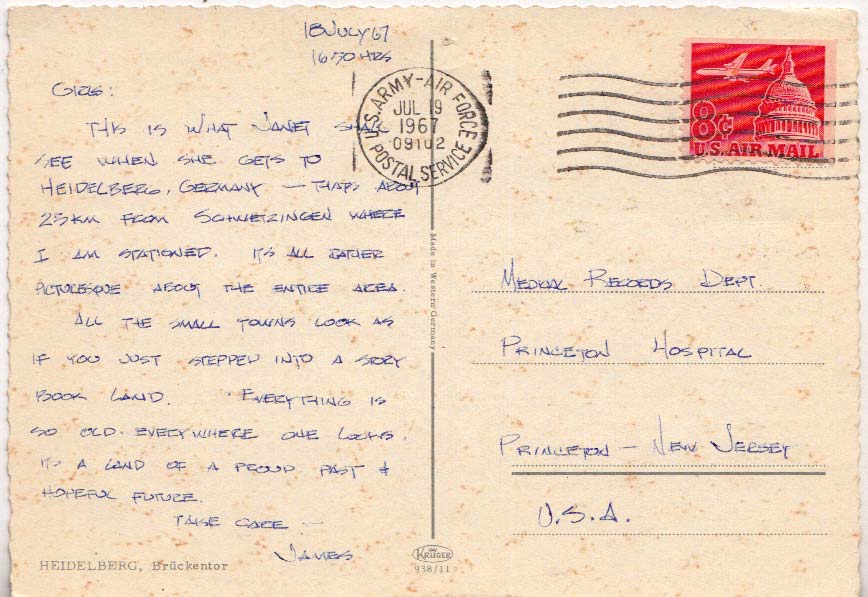 18 JULY 67
1650 HRS
GIRLS:
THIS IS WHAT JANET SHALL
SEE WHEN SHE GETS TO
HEIDELBERG, GERMANY — THATS ABOUT
25 KM FROM SCHWETZINGEN WHERE
I AM STATIONED. ITS ALL RATHER
PICTURESQUE ABOUT THE ENTIRE AREA.
ALL THE SMALL TOWNS LOOK AS
IF YOU JUST STEPPED INTO A STORY
BOOK LAND. EVERYTHING IS
SO OLD. EVERYWHERE ONE LOOKS.
ITS A LAND OF A PROUD PAST &
HOPEFUL FUTURE.
TAKE CARE —
JAMES
HEIDELBERG, Brückentor
Made in Western Germany
KRÜGER
938/11
U.S. ARMY-AIR FORCE
JUL 19
1967
09102
POSTAL SERVICE
8¢
U.S. AIR MAIL
MEDICAL RECORDS DEPT.
PRINCETON HOSPITAL
PRINCETON — NEW JERSEY
U.S.A.